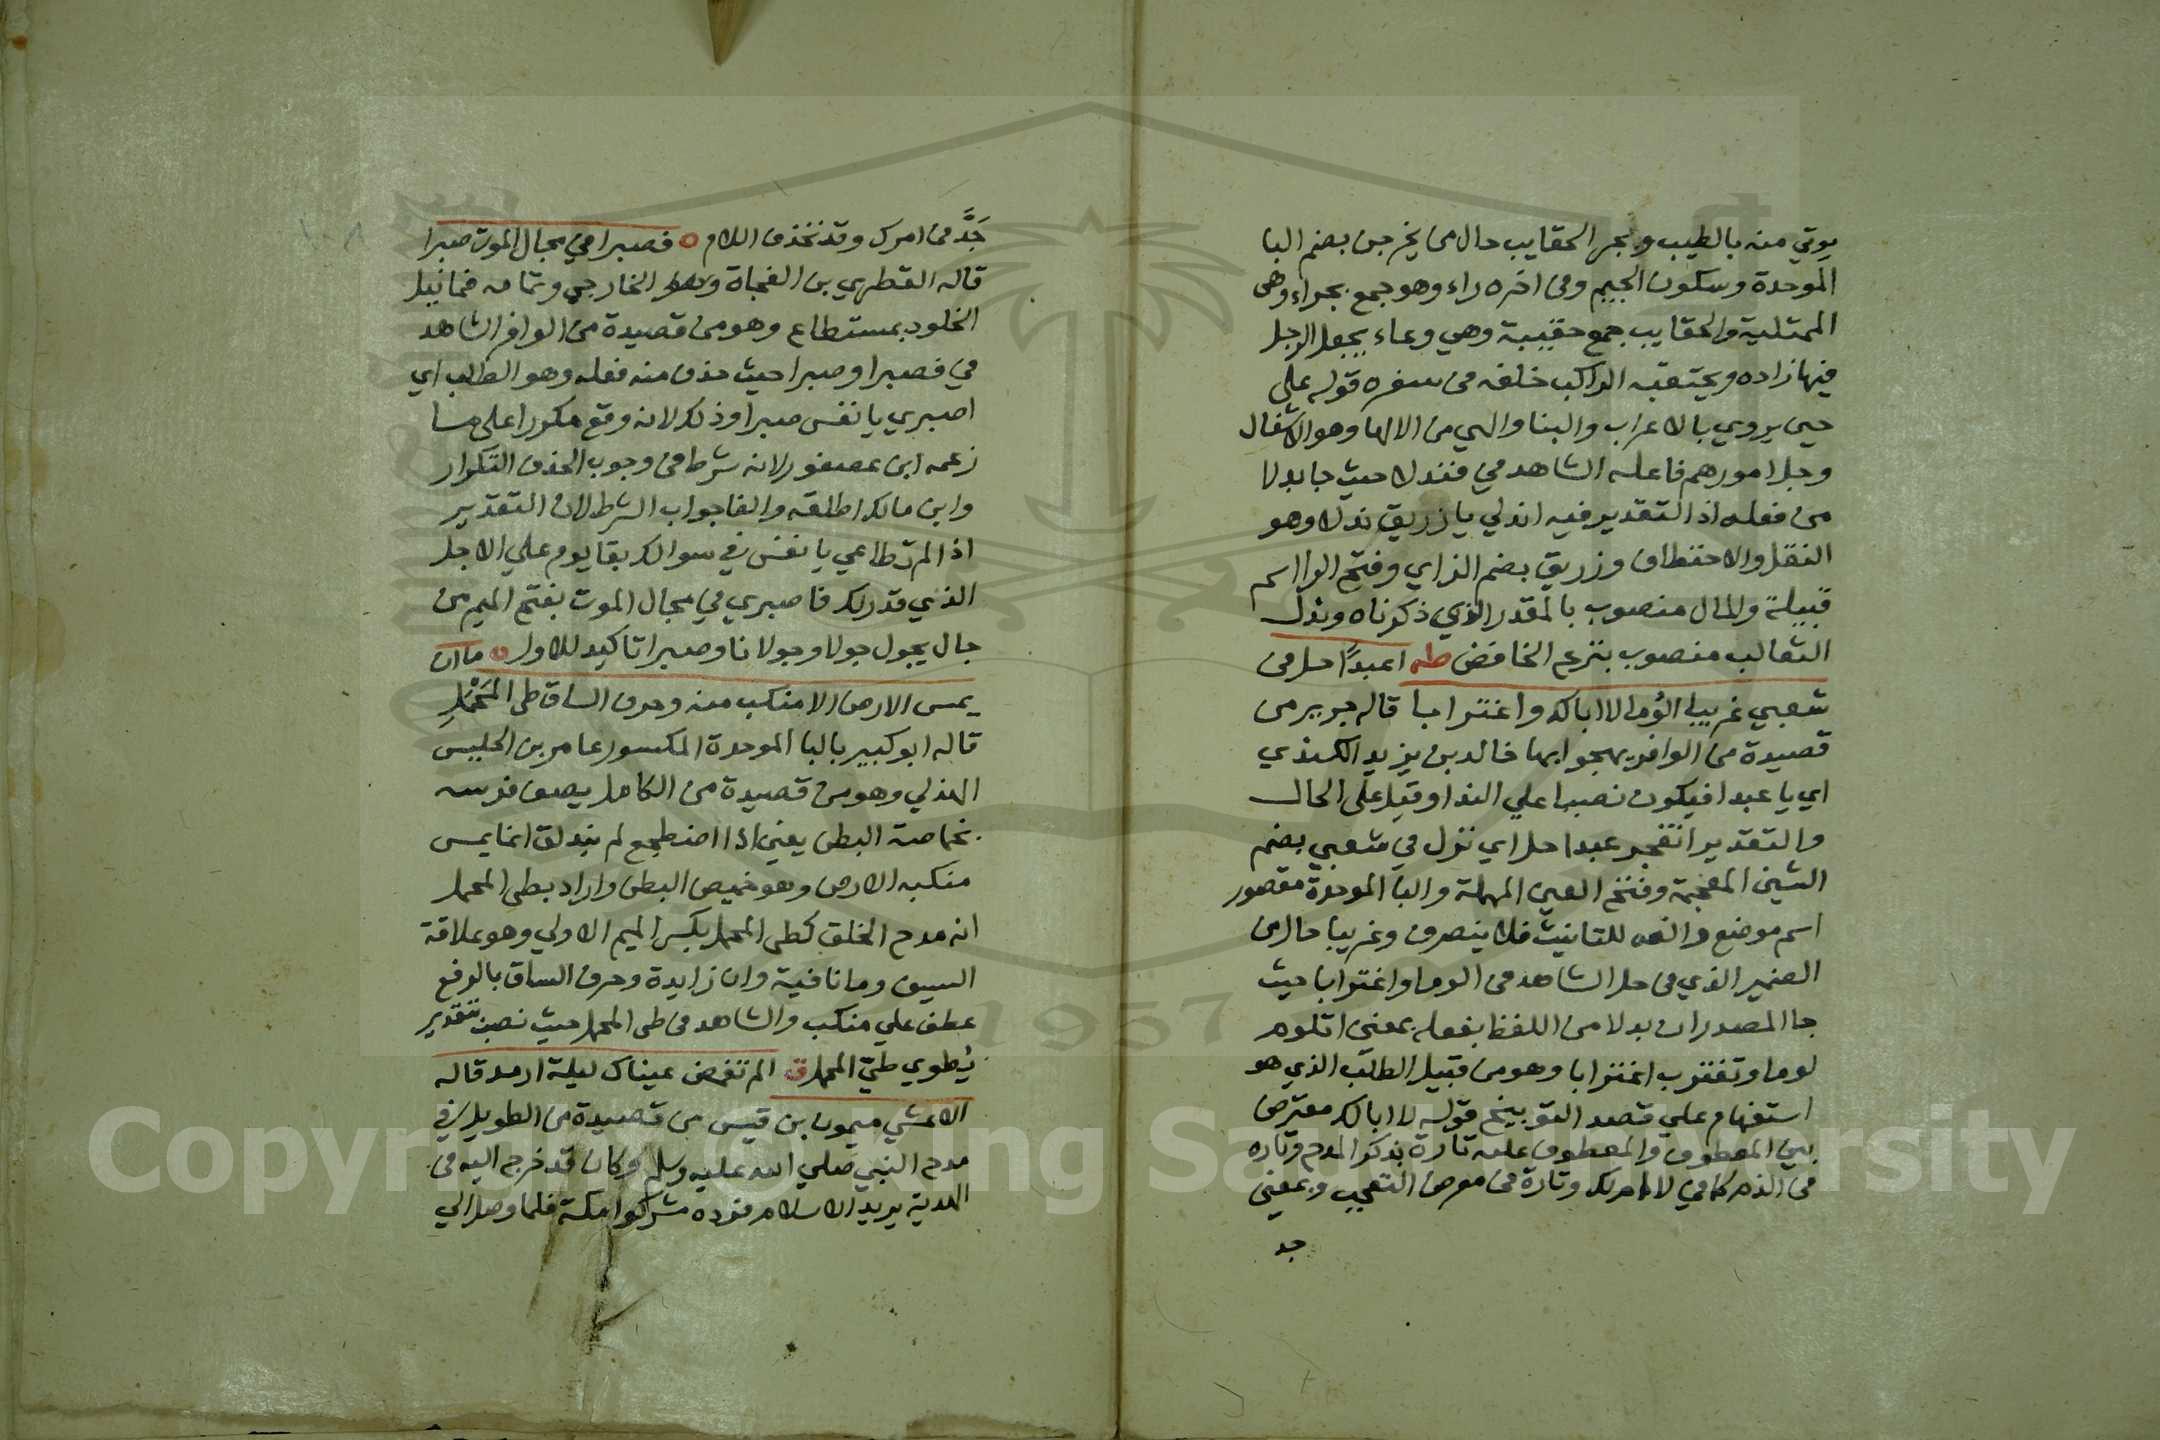 يوتي منه بالطيب وبجر الحقايب حال من يخرجن بضم البا
الموحدة وسكون الجيم وفي اخره راء وهو جمع بجراء وهي
الممتلية والحقايب جمع حقيبة وهي وعاء يجعل الرجل
فيها زاده ويحتقبه الراكب خلفه في سفره قوله على
حين يروي بالاعراب والبنا والهي من الالها وهو الاشغال
وجل امورهم فاعله الشاهد في فندلا حيث جا بدلا
من فعله اذ التقدير فيه اندلي يا زريق ندلا وهو
النقل والاختطاف وزريق بضم الزاي وفتح الرا اسم
قبيلة والمال منصوب بالمقدر الذي ذكرناه وندل
الثعالب منصوب بنزع الخافض طه اعبدًا حل في
شعبي غريبا الؤما لا ابا لك واغترابا قاله جرير من
قصيدة من الوافر يهجوا بها خالد بن يزيد الكندي
اي يا عبدا فيكون نصبا علي الندا وقيل علي الحال
والتقدير اتفجر عبدا حل اي نزل في شعبي بضم
الشين المعجمة وفتح العين المهملة والبا الموحدة مقصور
اسم موضع والفه للتانيث فلا ينصرف وغريبا حال من
الضمير الذي في حل الشاهد في الوما واغترابا حيث
جا المصدران بدلا من اللفظ بفعله بمعني اتلوم
لوما وتغترب اغترابا وهو من قبيل الطلب الذي هو
استفهام علي قصد التوبيخ قوله لا ابا لك معترض
بين المعطوف والمعطوف عليه تارة بذكر المدح وتاره
في الذم كما في لا ام لك وتارة في معرض التعجب وبمعني
جد
جَدَّ في امرك وقد تحذف اللام ه فصبرا في مجال الموت صبرا
قاله القطري بن الفجاة الخارجي وتمامه فما نيل
الخلود بمستطاع وهو من قصيدة من الوافر الشاهد
في فصبرا وصبرا حيث حذف منه فعله وهو الطلب اي
اصبري يا نفس صبرا وذلك لانه وقع مكررا علي ما
زعمه ابن عصفور لانه شرط في وجوب الحذف التكرار
وابن مالك اطلقه والفا جواب الشرط لان التقدير
اذا لم تطاعي يا نفس في سوالك بقا يوم علي الاجل
الذي قدر لك فاصبري في مجال الموت بفتح الميم من
جال يجول جولا وجولانا وصبرا تاكيد للاول ه ما ان
يمس الارض الا منكب منه وحرف الساق طي المَحْمَلِ
قاله ابو كبير بالبا الموحدة المكسور عامر بن الحليس
الهذلي وهو من قصيدة من الكامل يصف فرسه
بخماصة البطن يعني اذا اضطجع لم يندلق انما يمس
منكبه الارض وهو خميص البطن واراد بطي المحمل
انه مدح الخلق كطي المحمل بكسر الميم الاولي وهو علاقة
السيف وما نافية وان زايدة وحرف الساق بالرفع
عطف علي منكب والشاهد في طي المحمل حيث نصب بتقدير
يُطوي طيّ المحمل ق الم تغمض عيناك ليلة ارمد قاله
الاعشي ميمون بن قيس من قصيدة من الطويل في
مدح النبي صلي الله عليه وسلم وكان قد خرج اليه في
الهدنة يريد الاسلام فرده مشركوا مكة فلما وصل الي